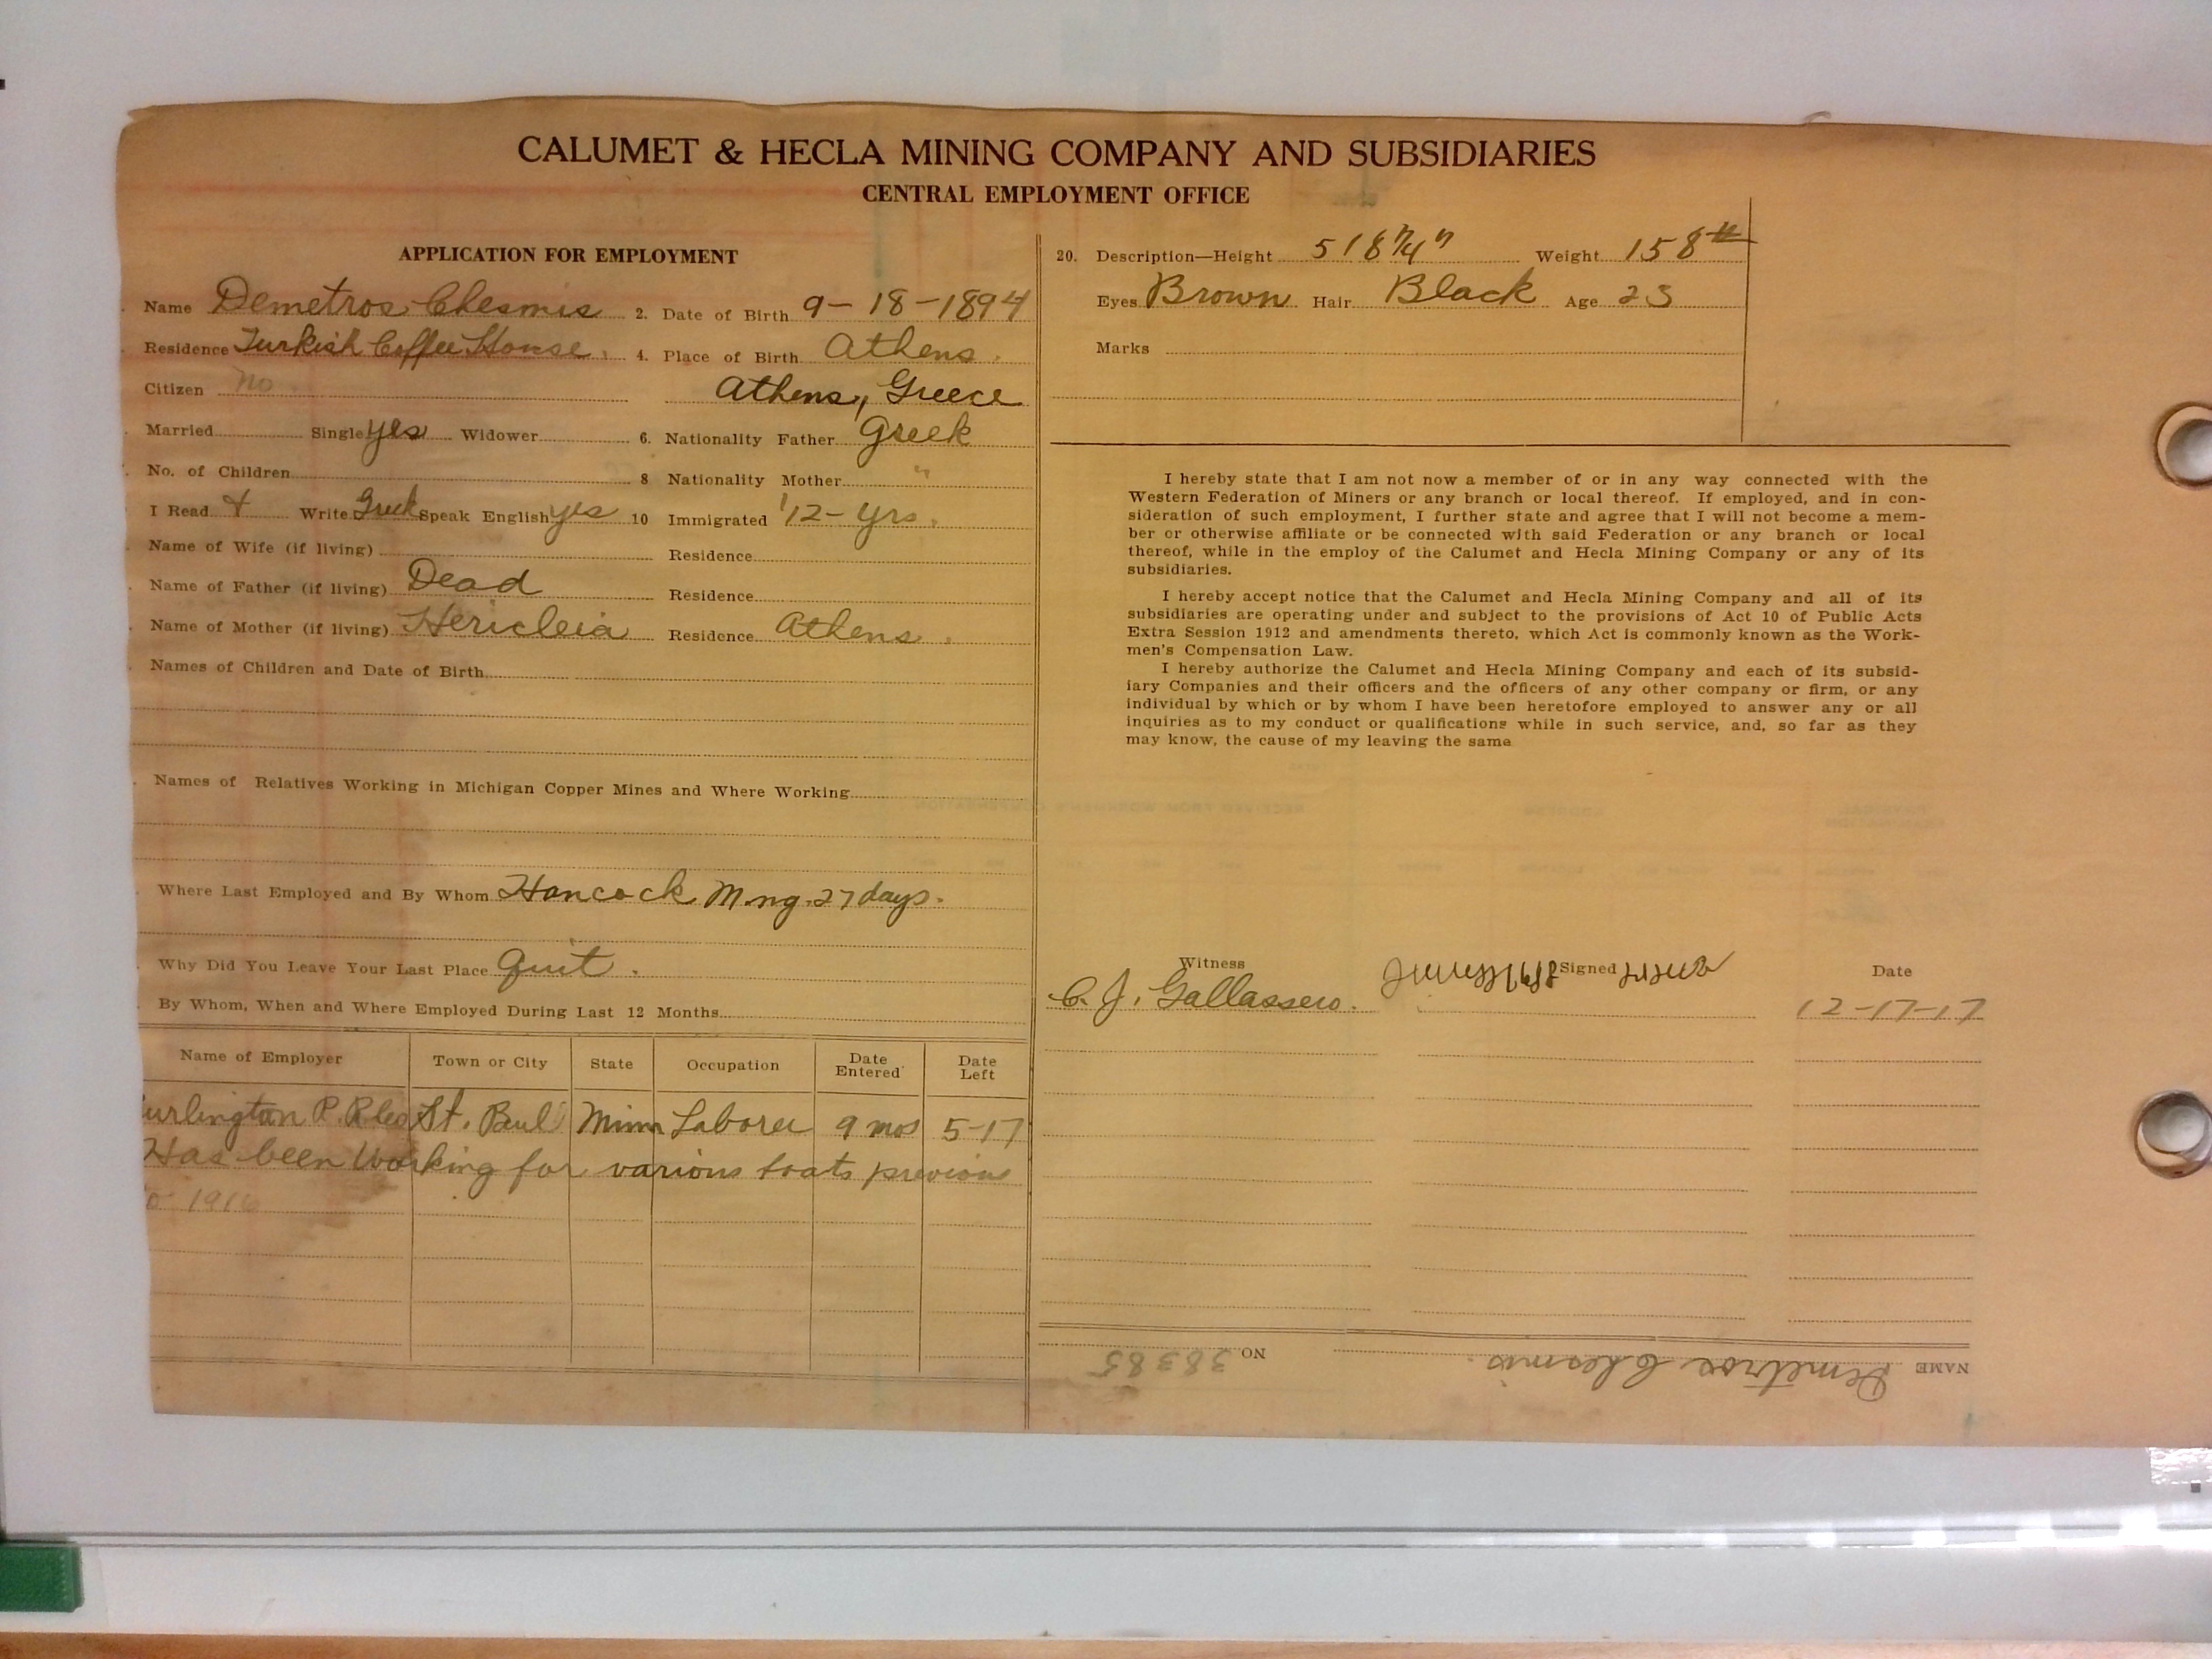 CALUMET & HECLA MINING COMPANY AND SUBSIDIARIES
CENTRAL EMPLOYMENT OFFICE
APPLICATION FOR EMPLOYMENT
Name Demetros Chesmis 2. Date of Birth 9-18-1894
Residence Turkish Coffee House. 4. Place of Birth Athens.
Citizen No. Athens, Greece
Married Single yes Widower 6. Nationality Father Greek
No. of Children 8 Nationality Mother "
I Read & Write Greek Speak English yes 10 Immigrated 12-yrs.
Name of Wife (if living) Residence
Name of Father (if living) Dead Residence
Name of Mother (if living) Hericleia Residence Athens.
Names of Children and Date of Birth
Names of Relatives Working in Michigan Copper Mines and Where Working
Where Last Employed and By Whom Hancock M.ng. 27 days.
Why Did You Leave Your Last Place quit.
By Whom, When and Where Employed During Last 12 Months
Name of Employer Town or City State Occupation Date Entered Date Left
urlington P. St. Paul Minn Laborer 9 mos 5-17
Has been Working for various boats previous
o 1916
20. Description—Height Weight 158#
Eyes Brown Hair Black Age 23
Marks
I hereby state that I am not now a member of or in any way connected with the
Western Federation of Miners or any branch or local thereof. If employed, and in con-
sideration of such employment, I further state and agree that I will not become a mem-
ber or otherwise affiliate or be connected with said Federation or any branch or local
thereof, while in the employ of the Calumet and Hecla Mining Company or any of its
subsidiaries.
I hereby accept notice that the Calumet and Hecla Mining Company and all of its
subsidiaries are operating under and subject to the provisions of Act 10 of Public Acts
Extra Session 1912 and amendments thereto, which Act is commonly known as the Work-
men's Compensation Law.
I hereby authorize the Calumet and Hecla Mining Company and each of its subsid-
iary Companies and their officers and the officers of any other company or firm, or any
individual by which or by whom I have been heretofore employed to answer any or all
inquiries as to my conduct or qualifications while in such service, and, so far as they
may know, the cause of my leaving the same
Witness Signed Date
C. J. Gallassero. 12-17-17
NAME Demetros Chesmis. NO 38385